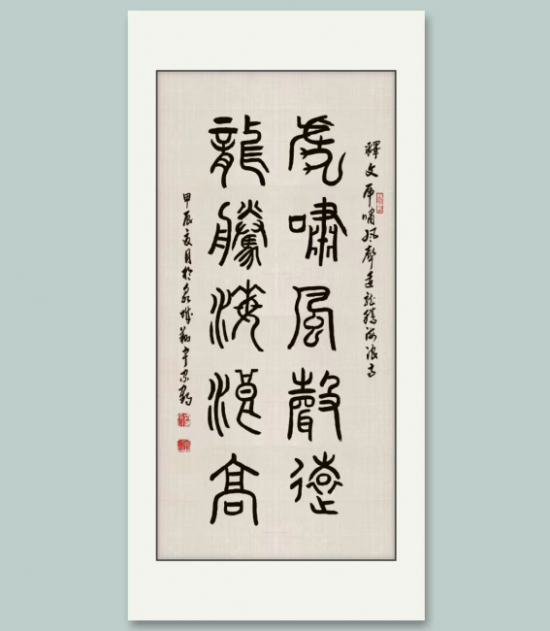 釋文虎嘯風聲遠龍騰海浪高
虎嘯風聲遠
龍騰海浪高
甲辰夏月於泉城